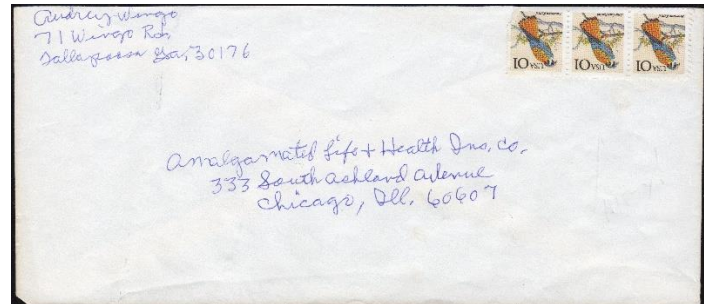 Audrey Wingo
71 Wingo Rd,
Tallapoosa Ga, 30176
USA 10
USA 10
USA 10
Amalgamated Life + Health Ins. Co.
333 South Ashland Avenue
Chicago, Ill. 60607